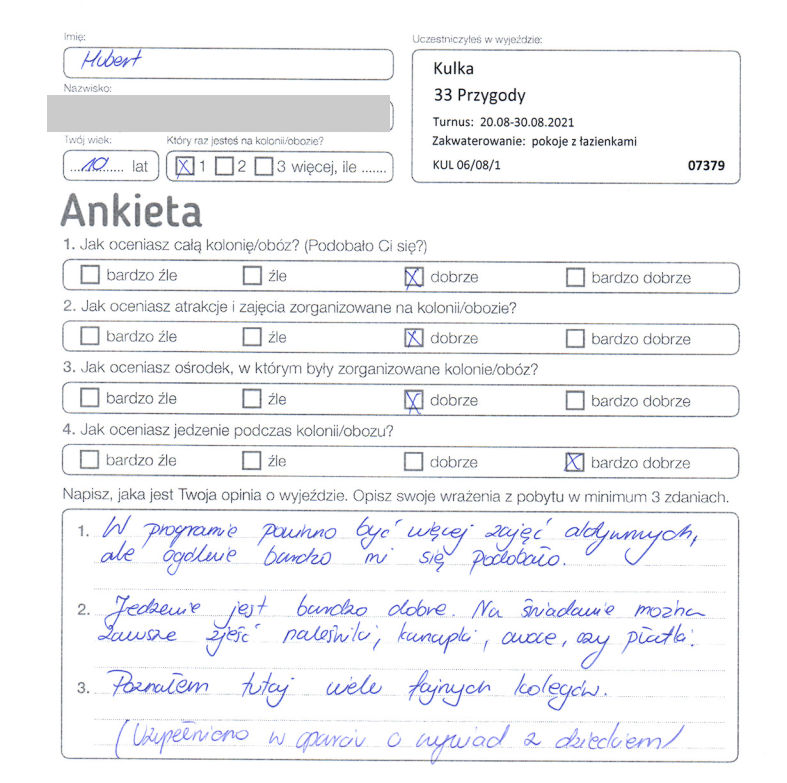 Imię:
Hubert
Nazwisko:
Twój wiek:
10 lat
Który raz jesteś na kolonii/obozie?
1 2 3 więcej, ile .......
Uczestniczyłeś w wyjeździe:
Kulka
33 Przygody
Turnus: 20.08-30.08.2021
Zakwaterowanie: pokoje z łazienkami
KUL 06/08/1 07379
Ankieta
1. Jak oceniasz całą kolonię/obóz? (Podobało Ci się?)
bardzo źle źle dobrze bardzo dobrze
2. Jak oceniasz atrakcje i zajęcia zorganizowane na kolonii/obozie?
bardzo źle źle dobrze bardzo dobrze
3. Jak oceniasz ośrodek, w którym były zorganizowane kolonie/obóz?
bardzo źle źle dobrze bardzo dobrze
4. Jak oceniasz jedzenie podczas kolonii/obozu?
bardzo źle źle dobrze bardzo dobrze
Napisz, jaka jest Twoja opinia o wyjeździe. Opisz swoje wrażenia z pobytu w minimum 3 zdaniach.
1. W programie powinno być więcej zajęć aktywnych,
ale ogólnie bardzo mi się podobało.
2. Jedzenie jest bardzo dobre. Na śniadanie można
zawsze zjeść naleśniki, kanapki, owoce, czy płatki.
3. Poznałem tutaj wielu fajnych kolegów.
(Uzupełniono w oparciu o wywiad z dzieckiem)